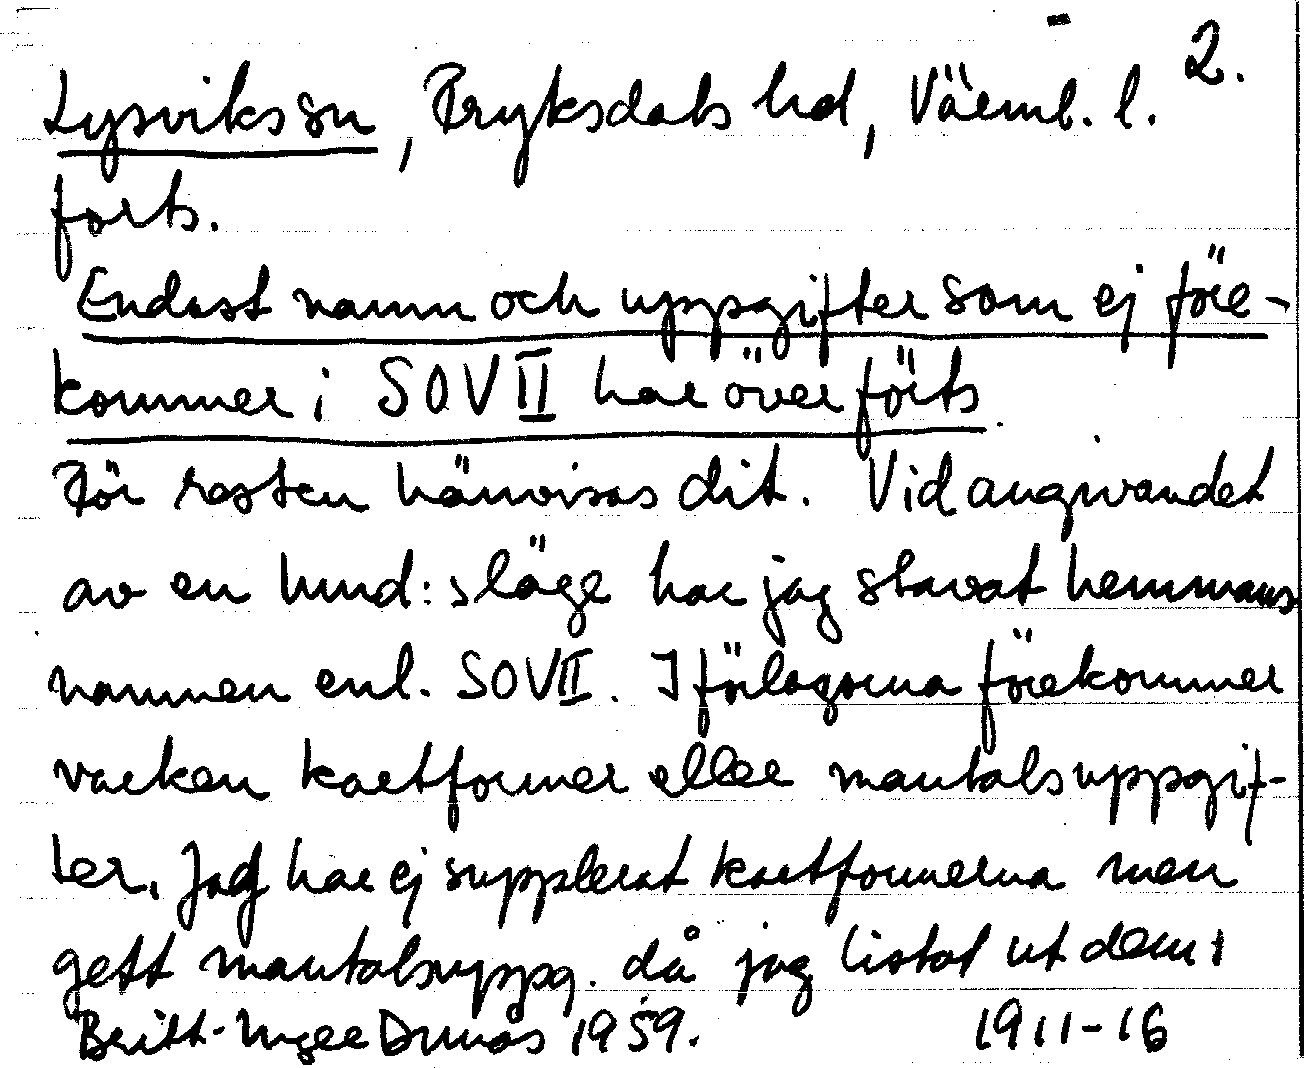 2.
Lysviks sn, Fryksdals hd, Värml. l.
forts.
Endast namn och uppgifter som ej före-
kommer i SOV II har överförts.
För resten hänvisas dit. Vid angivandet
av en lund:s läge har jag stavat hemmans
namnen enl. SOV II. I förlagorna förekommer
varken kartformer eller mantalsuppgif-
ter. Jag har ej supplerat kartformerna men
gett mantalsuppg. då jag listat ut dem i
Britt-Inger Dunås 1959. 1911-16